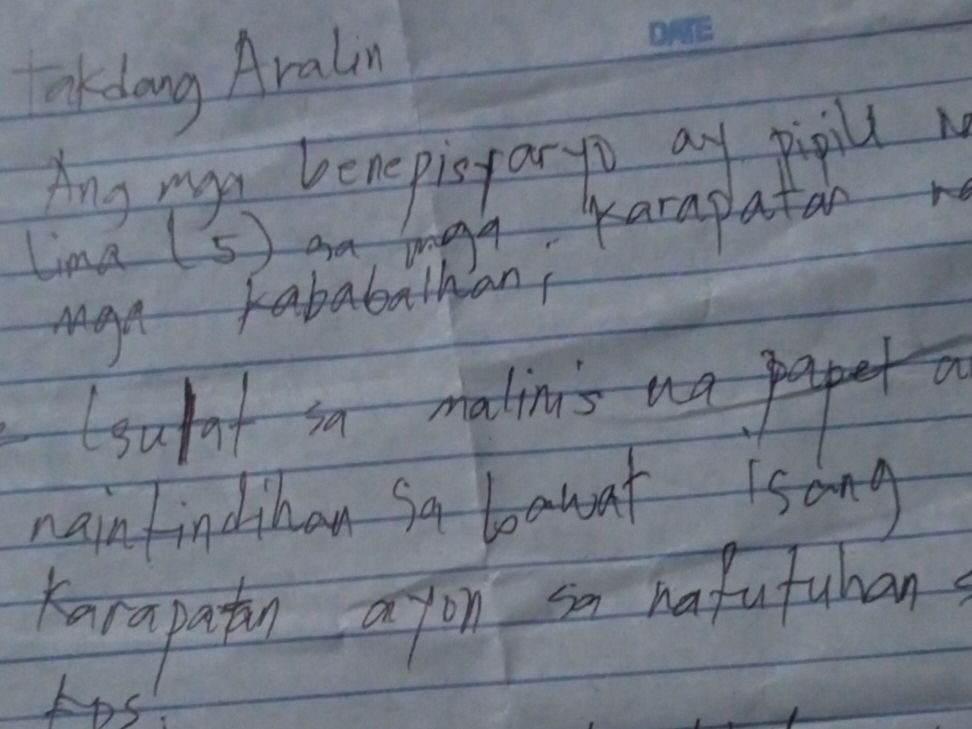 DATE
Takdang Aralin
Ang mga benepisyaryo ay pipili
lima (5) sa mga karapatan
mga kababaihan,
Isulat sa malinis na papel
naintindihan sa bawat isang
karapatan ayon sa natutuhan